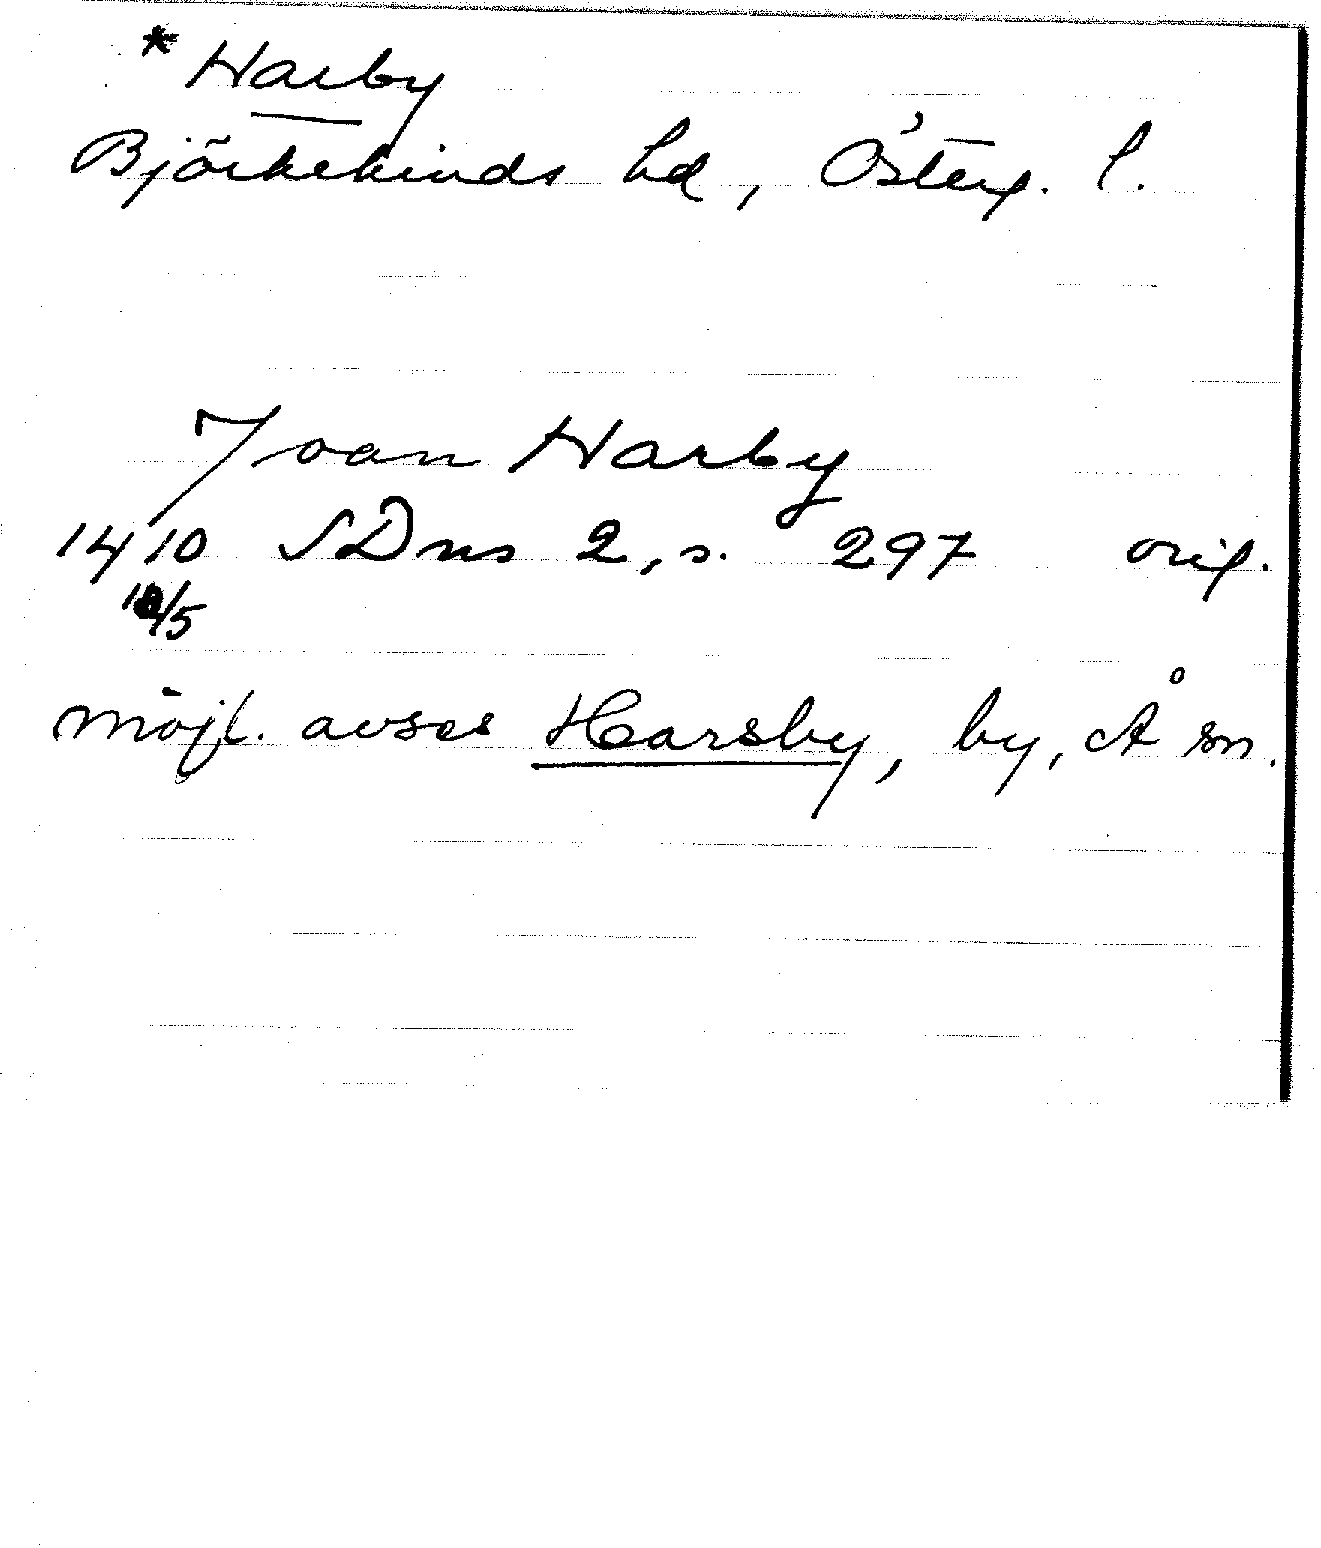 * Harby
Björkekinds hd, Österg. l.
J oan Harby
1410 SDns 2, s. 297 orig.
/5
möjl. avses Harsby, by, Å sn.